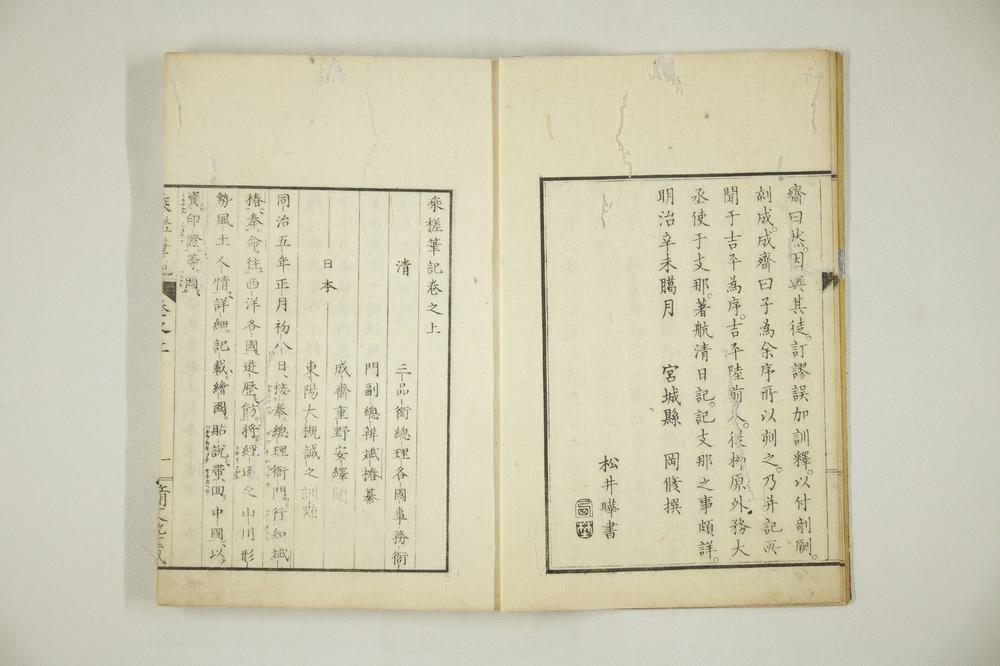 齋曰然。因與其徒。訂謬誤加訓釋。以付剞劂。
刻成。成齋曰子為余序所以刻之。乃并記所
聞于吉平為序。吉平陸前人。從栁原外務大
丞使于支那。著航清日記。記支那之事頗詳。
明治辛未臈月　宮城縣　岡條撰
松井曄書
乘槎筆記卷之上
清　三品銜總理各國事務衙
門副總辨斌椿纂
日本　成齋重野安繹閱
東陽大槻誠之訓點
同治五年正月初八日、接奉總理衙門行知斌
椿奉命往西洋各國遊歷飭將經過之山川形
勢風土人情詳細記載繪圖貼說帶回中國以
資印證等因